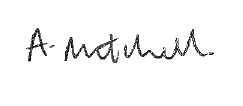 A. Mitchell